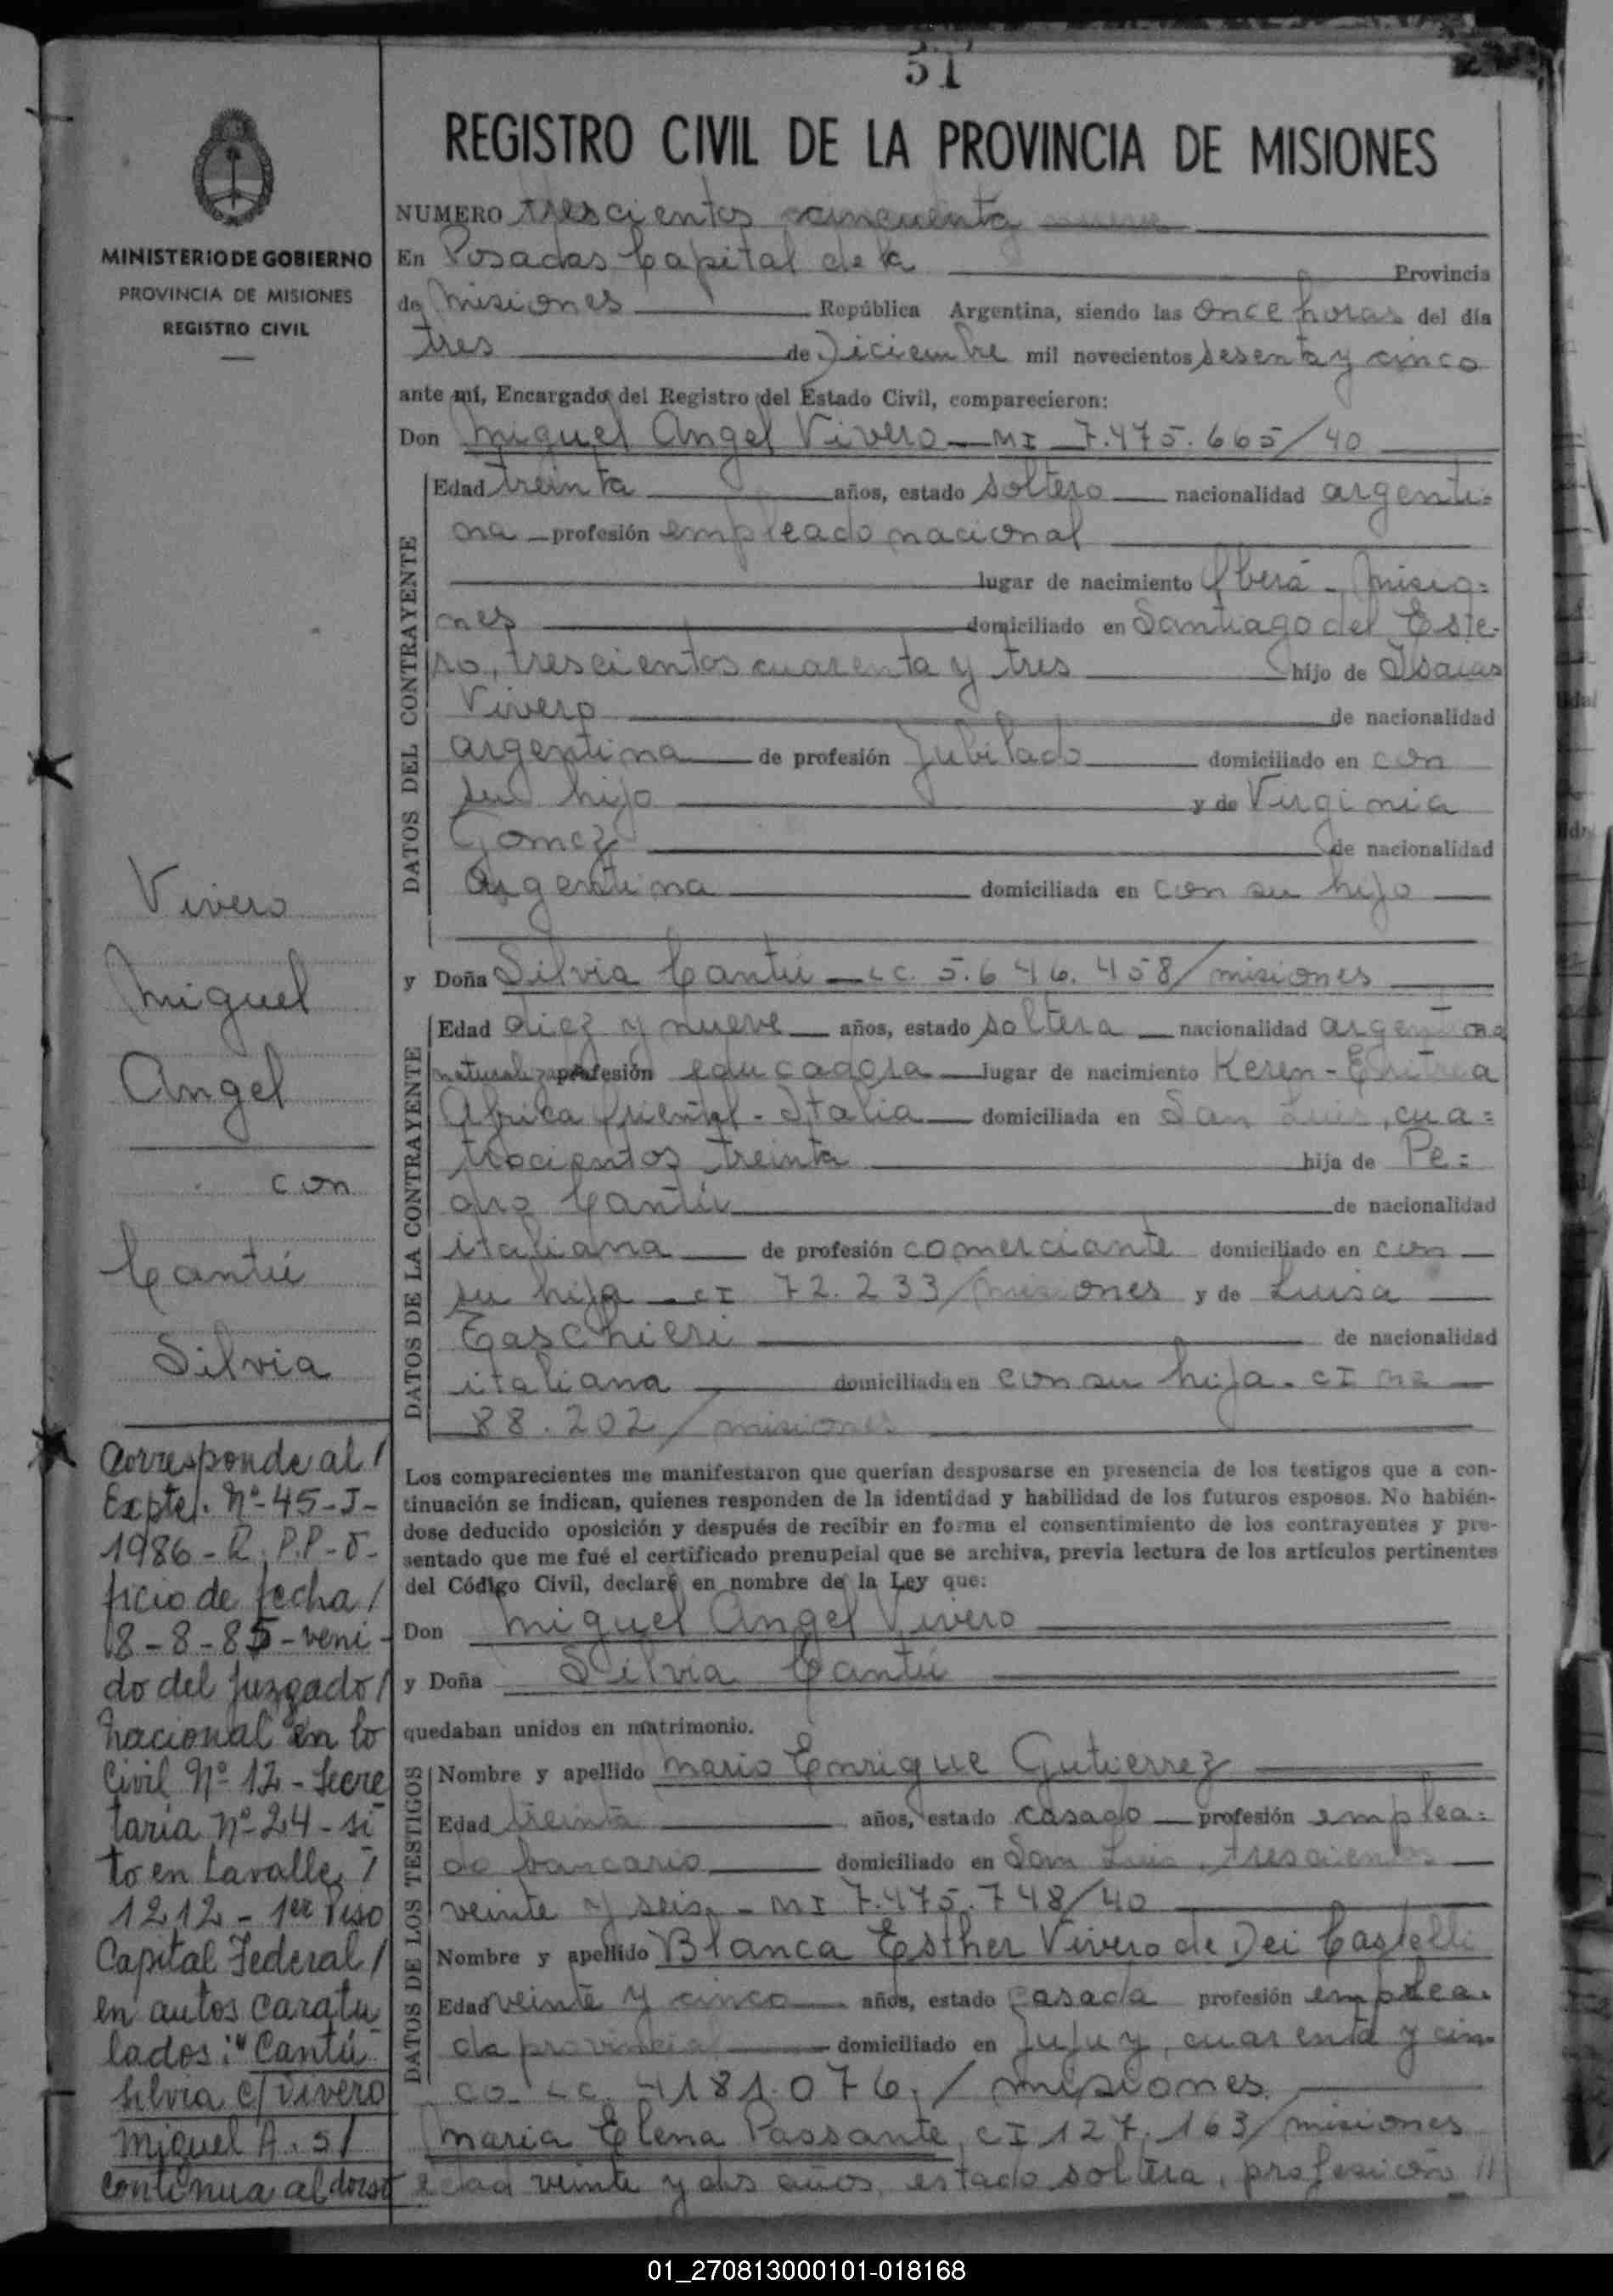 51
REGISTRO CIVIL DE LA PROVINCIA DE MISIONES
MINISTERIO DE GOBIERNO
PROVINCIA DE MISIONES
REGISTRO CIVIL
NUMERO trescientos cincuenta nueve
En Posadas Capital de la Provincia
de Misiones República Argentina, siendo las once horas del día
tres de Diciembre mil novecientos sesenta y cinco
ante mí, Encargado del Registro del Estado Civil, comparecieron:
Don Miguel Angel Vivero — MI 7.475.665/40
DATOS DEL CONTRAYENTE
Edad treinta años, estado soltero nacionalidad argenti=
na profesión empleado nacional
lugar de nacimiento Iberá - Misio=
nes domiciliado en Santiago del Este-
ro, trescientos cuarenta y tres hijo de Isaias
Vivero de nacionalidad
argentina de profesión Jubilado domiciliado en con
su hijo y de Virginia
Gomez de nacionalidad
Argentina domiciliada en con su hijo
y Doña Silvia Cantú — LC. 5.646.458/misiones
DATOS DE LA CONTRAYENTE
Edad diez y nueve años, estado soltera nacionalidad argentina
naturaliza profesión educadora lugar de nacimiento Keren - Eritrea
Africa Oriental - Italia domiciliada en San Luis, cua=
trocientos treinta hija de Pe=
dro Cantú de nacionalidad
italiana de profesión comerciante domiciliado en con
su hija - CI 72.233/misiones y de Luisa
Taschieri de nacionalidad
italiana domiciliada en con su hija. CI no
88.202/misiones
Los comparecientes me manifestaron que querían desposarse en presencia de los testigos que a con-
tinuación se indican, quienes responden de la identidad y habilidad de los futuros esposos. No habién-
dose deducido oposición y después de recibir en forma el consentimiento de los contrayentes y pre-
sentado que me fué el certificado prenupcial que se archiva, previa lectura de los artículos pertinentes
del Código Civil, declaré en nombre de la Ley que:
Don Miguel Angel Vivero
y Doña Silvia Cantú
quedaban unidos en matrimonio.
DATOS DE LOS TESTIGOS
Nombre y apellido Mario Enrique Gutierrez
Edad treinta años, estado casado profesión emplea=
do bancario domiciliado en San Luis, trescientos
veinte y seis - MI 7.475.748/40
Nombre y apellido Blanca Esther Vivero de Dei Castelli
Edad veinte y cinco años, estado casada profesión emplea-
da provincial domiciliado en Jujuy, cuarenta y cin-
co LC. 4181.076,/misiones.
Maria Elena Passante, CI 127.163/misiones
edad veinte y dos años, estado soltera, profesion //
Vivero
Miguel
Angel
con
Cantú
Silvia
Corresponde al/
Expte. Nº-45-J-
1986-R.P.P-O-
ficio de fecha/
18-8-85-veni-
do del Juzgado/
Nacional en lo
Civil Nº 12-Secre
taria nº-24-si
to en Lavalle/
1212-1er Piso
Capital Federal/
en autos caratu
lados:"Cantú
Silvia c/Vivero
Miguel A. s/
continua al dorso
01_270813000101-018168